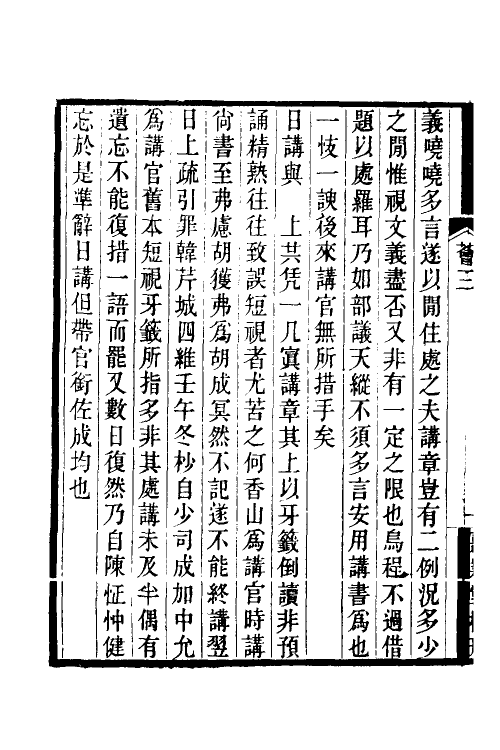 義曉曉多言遂以閒住處之夫講章豈有二例況多少
之閒惟視文義盡否又非有一定之限也烏程不過借
題以處羅耳乃如部議天縱不須多言安用講書為也
一忮一諛後來講官無所措手矣
日講與　上共凭一几寘講章其上以牙籤倒讀非預
誦精熟往往致誤短視者尤苦之何香山為講官時講
尙書至弗慮胡獲弗為胡成冥然不記遂不能終講翌
日上疏引罪韓芹城四維壬午冬杪自少司成加中允
為講官舊本短視牙籤所指多非其處講未及半偶有
遺忘不能復措一語而罷又數日復然乃自陳怔忡健
忘於是準辭日講但帶官銜佐成均也
薈三